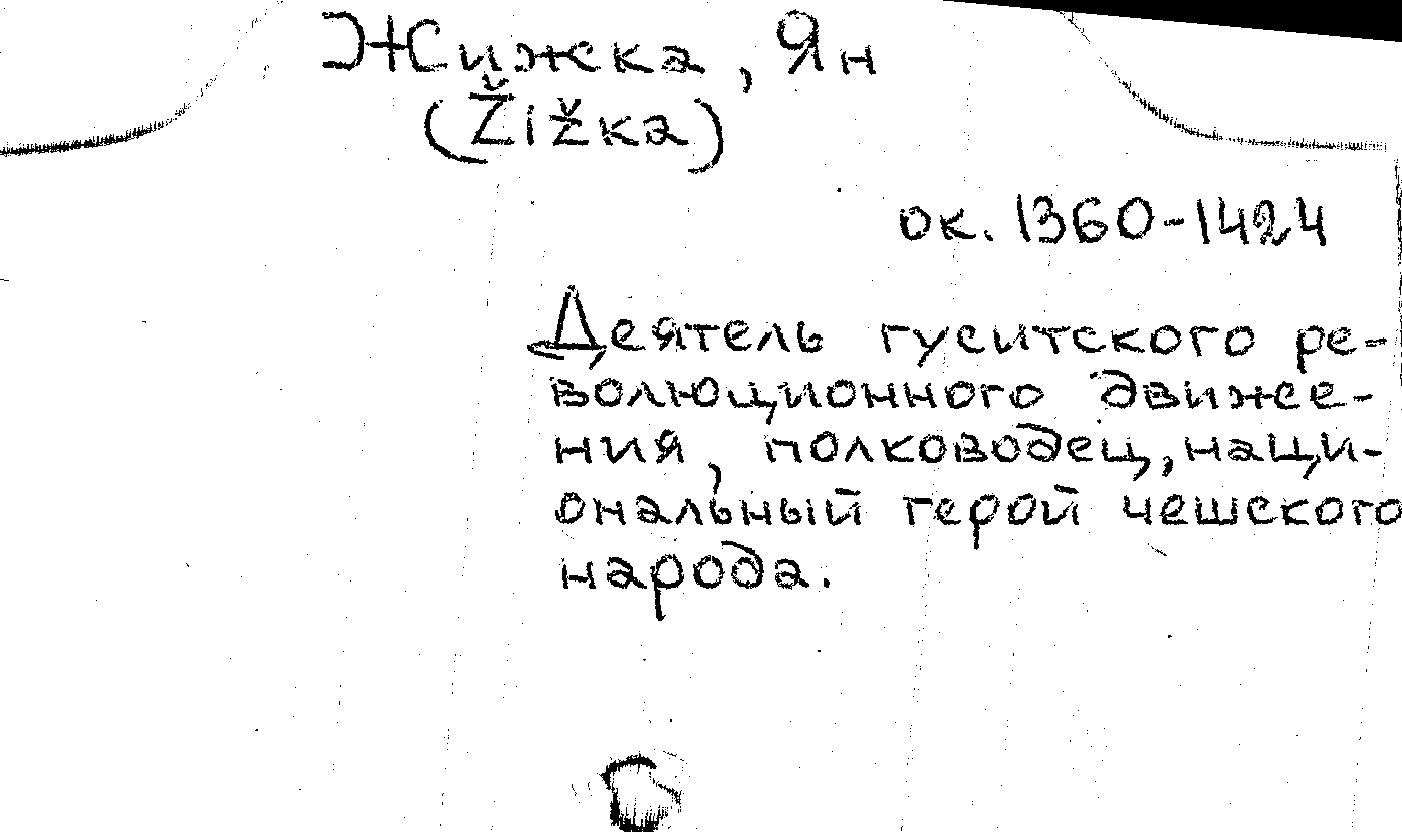 Жижка, Ян
(Žižka)
ок. 1360-1424
Деятель гуситского ре-
волюционного движе-
ния, полководец, наци-
ональный герой чешского
народа.